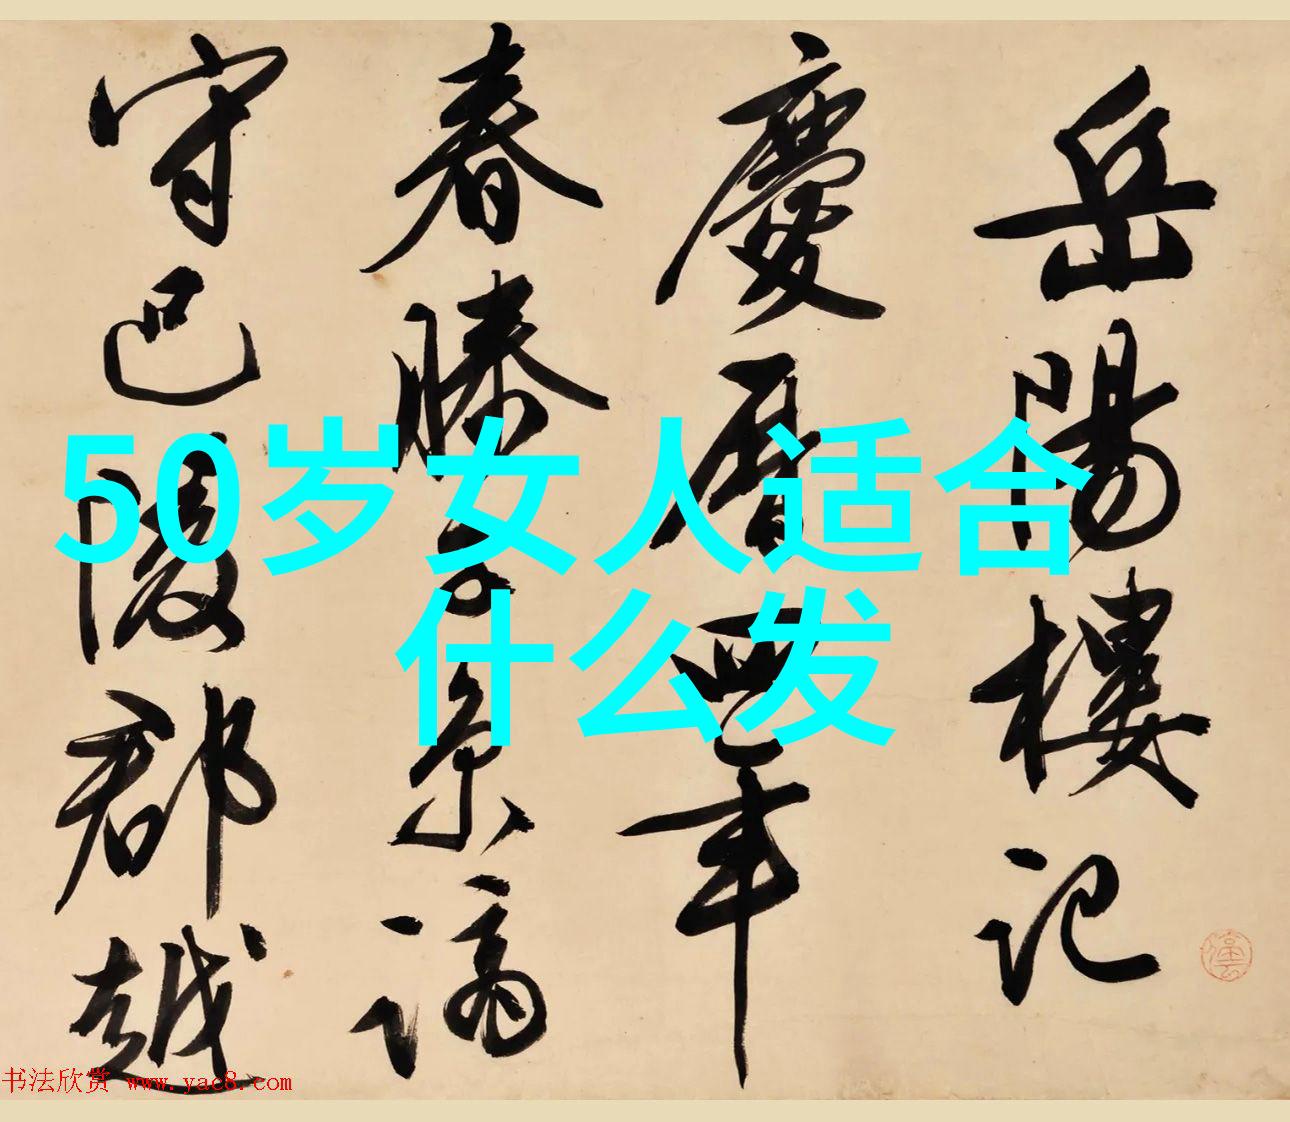 岳陽樓記
慶曆四年
春滕子京謫
守巴陵郡越
50岁女人适合
什么发
书法欣赏 www.yac8.com